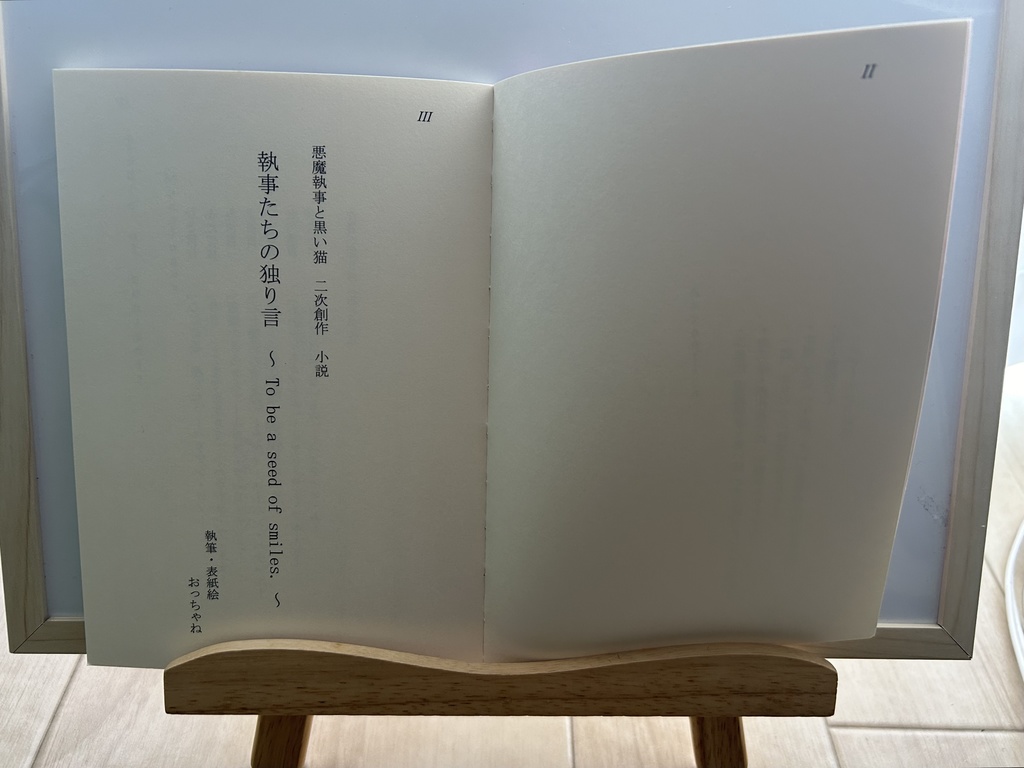 II
III
悪魔執事と黒い猫　二次創作　小説
執事たちの独り言　～ To be a seed of smiles. ～
執筆・表紙絵
おっちゃね